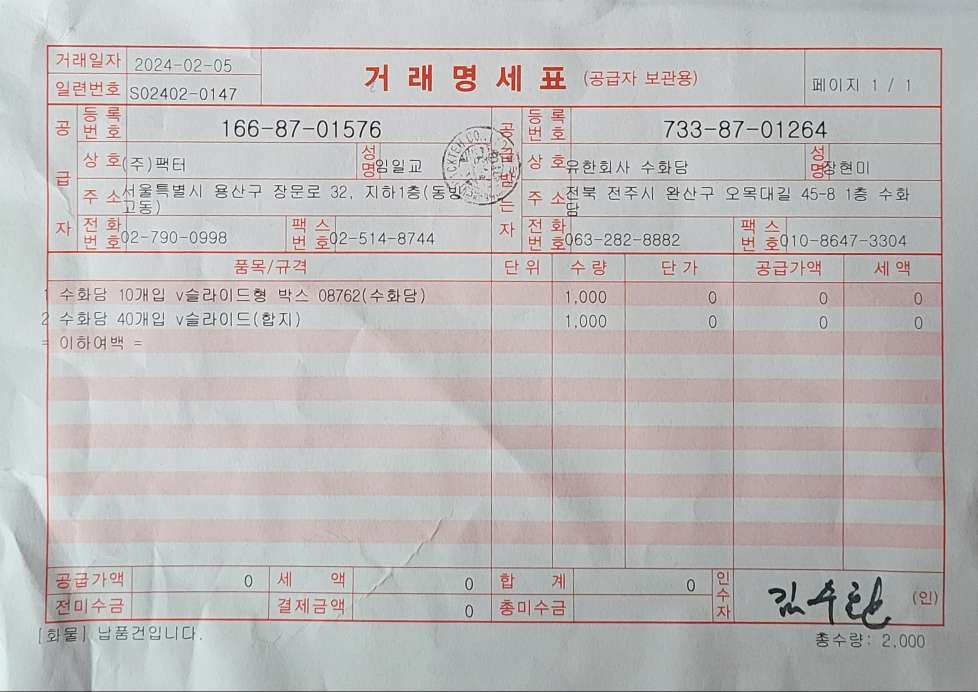 거래일자 2024-02-05
일련번호 S02402-0147
거 래 명 세 표 (공급자 보관용)
페이지 1 / 1
공급자
등록번호 166-87-01576
상호 (주)팩터 성명 임일교
주소 서울특별시 용산구 장문로 32, 지하1층(동빙고동)
전화번호 02-790-0998 팩스번호 02-514-8744
공급받는자
등록번호 733-87-01264
상호 유한회사 수화담 성명 장현미
주소 전북 전주시 완산구 오목대길 45-8 1층 수화담
전화번호 063-282-8882 팩스번호 010-8647-3304
품목/규격 단위 수량 단가 공급가액 세액
1 수화담 10개입 v슬라이드형 박스 08762(수화담) 1,000 0 0 0
2 수화담 40개입 v슬라이드(합지) 1,000 0 0 0
= 이하여백 =
공급가액 0 세액 0 합계 0 인수자 김수현 (인)
전미수금 결제금액 0 총미수금
[화물] 납품건입니다.
총수량: 2,000